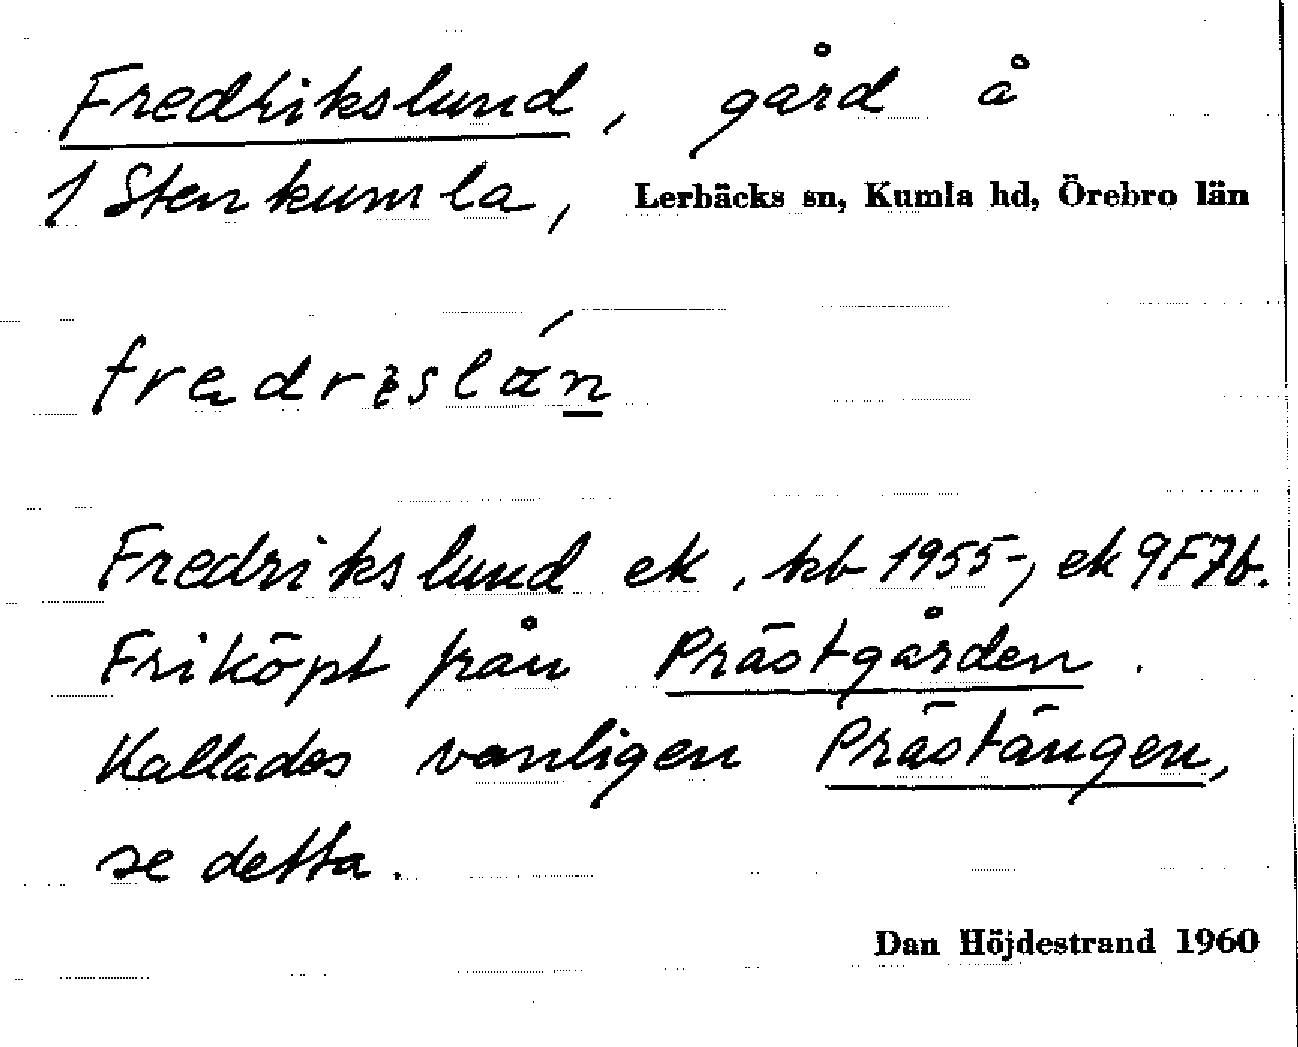 Fredrikslund, gård å
1 Stenkumla, Lerbäcks sn, Kumla hd, Örebro län
Fredrikslund ek, kb 1955-, ek 9F7b.
Friköpt från Prästgården.
Kallades vanligen Prästängen,
se detta.
Dan Höjdestrand 1960